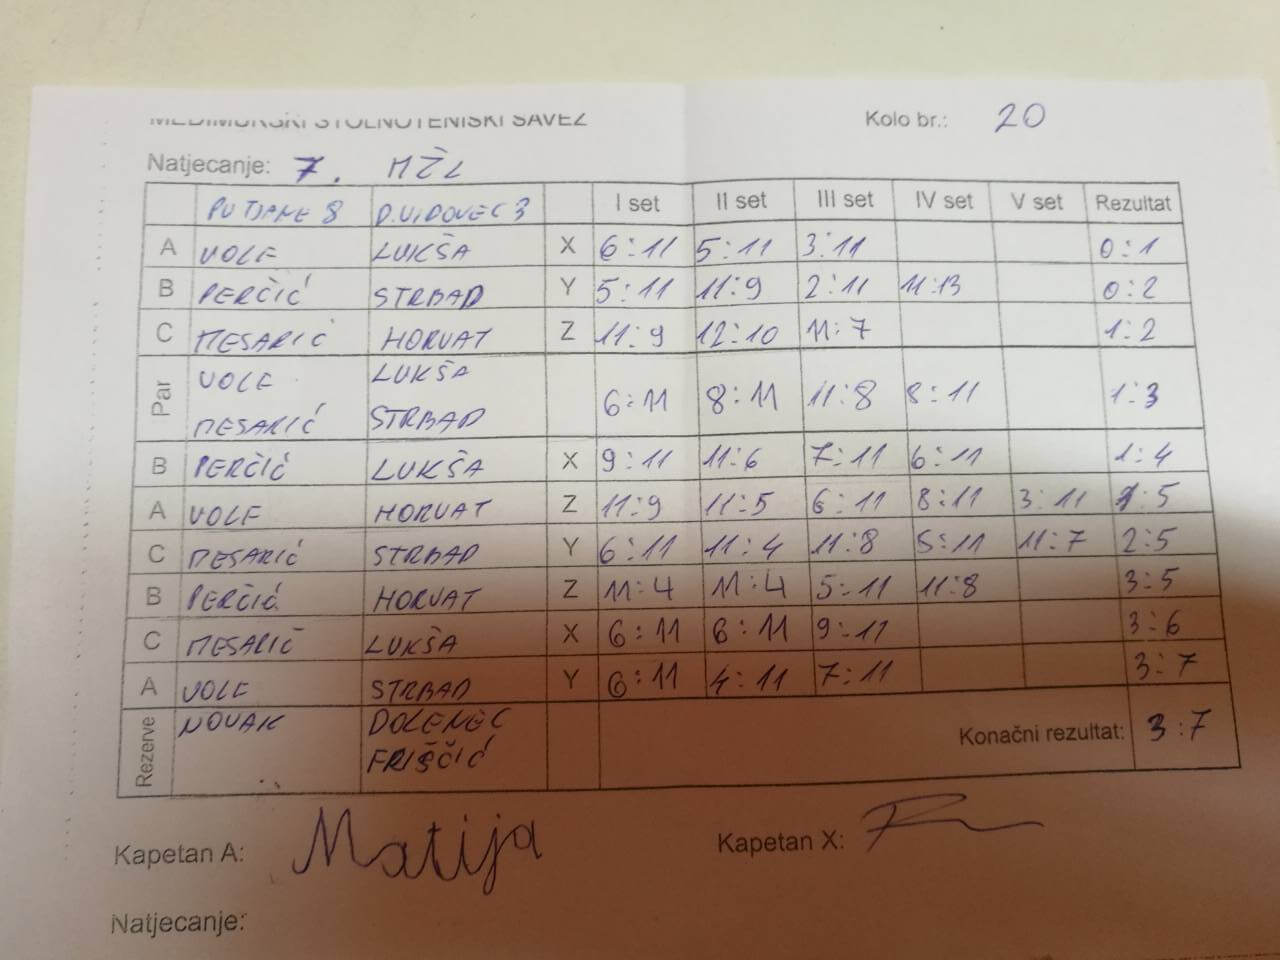 MEĐIMURSKI STOLNOTENISKI SAVEZ Kolo br.: 20
Natjecanje: 7. MŽL
PUTJANE 8 D.VIDOVEC 3 I set II set III set IV set V set Rezultat
A VOLF LUKŠA X 6:11 5:11 3:11 0:1
B PERČIĆ STRBAD Y 5:11 11:9 2:11 11:13 0:2
C MESARIĆ HORVAT Z 11:9 12:10 11:7 1:2
Par VOLF LUKŠA
MESARIĆ STRBAD 6:11 8:11 11:8 8:11 1:3
B PERČIĆ LUKŠA X 9:11 11:6 7:11 6:11 1:4
A VOLF HORVAT Z 11:9 11:5 6:11 8:11 3:11 1:5
C MESARIĆ STRBAD Y 6:11 11:4 11:8 5:11 11:7 2:5
B PERČIĆ HORVAT Z 11:4 11:4 5:11 11:8 3:5
C MESARIĆ LUKŠA X 6:11 6:11 9:11 3:6
A VOLF STRBAD Y 6:11 4:11 7:11 3:7
Rezerve NOVAK DOLENEC
FRIŠČIĆ Konačni rezultat: 3:7
Kapetan A: Matija Kapetan X:
Natjecanje: